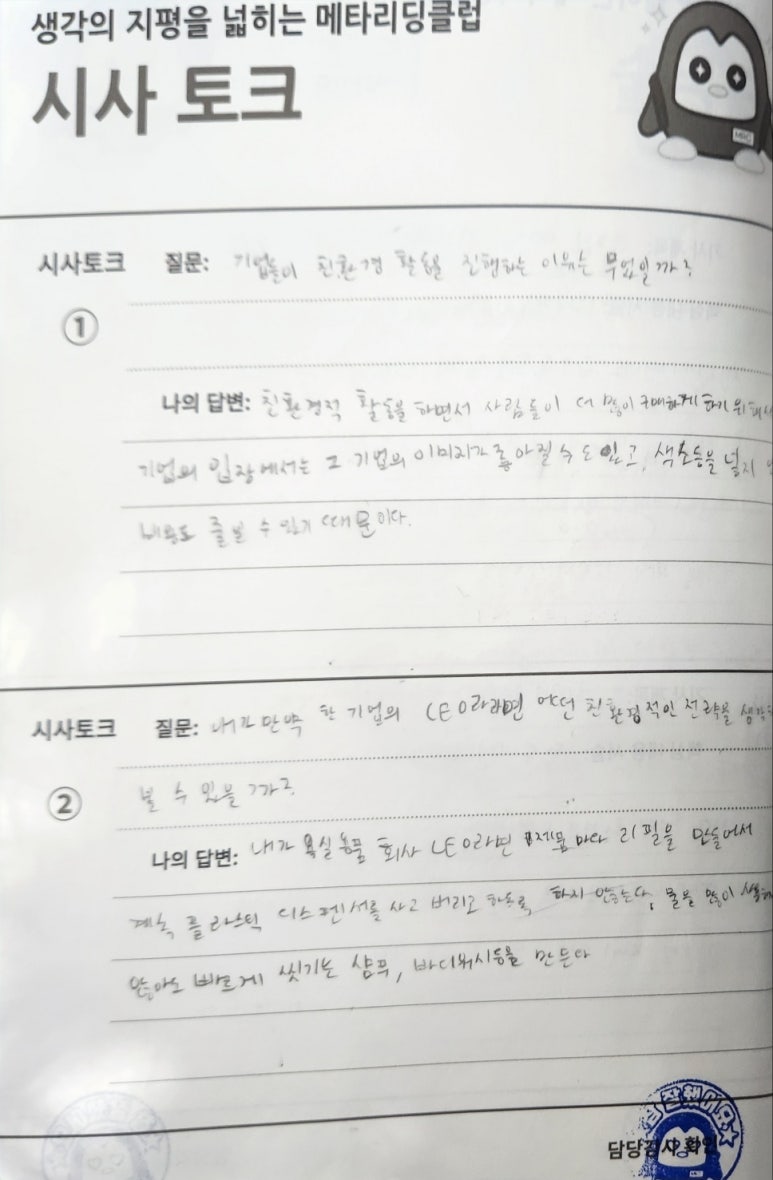 생각의 지평을 넓히는 메타리딩클럽
시사 토크
MRC
시사토크 질문: 기업들이 친환경 활동을 진행하는 이유는 무엇일까?
①
나의 답변: 친환경적 활동을 하면서 사람들이 더 많이 구매하게 하기 위해서
기업의 입장에서는 그 기업의 이미지가 좋아질 수도 있고, 색소등을 넣지
비용도 줄일 수 있기 때문이다.
시사토크 질문: 내가 만약 한 기업의 CEO라면 어떤 친환경적인 전략을
볼 수 있을까?
②
나의 답변: 내가 욕실용품 회사 CEO라면 제품마다 리필을 만들어서
계속 플라스틱 디스펜서를 사고 버리고 하도록 하지 않는다, 물을 많이
않아도 빠르게 씻기는 샴푸, 바디워시등을 만든다
담당강사 확인
잘했어요